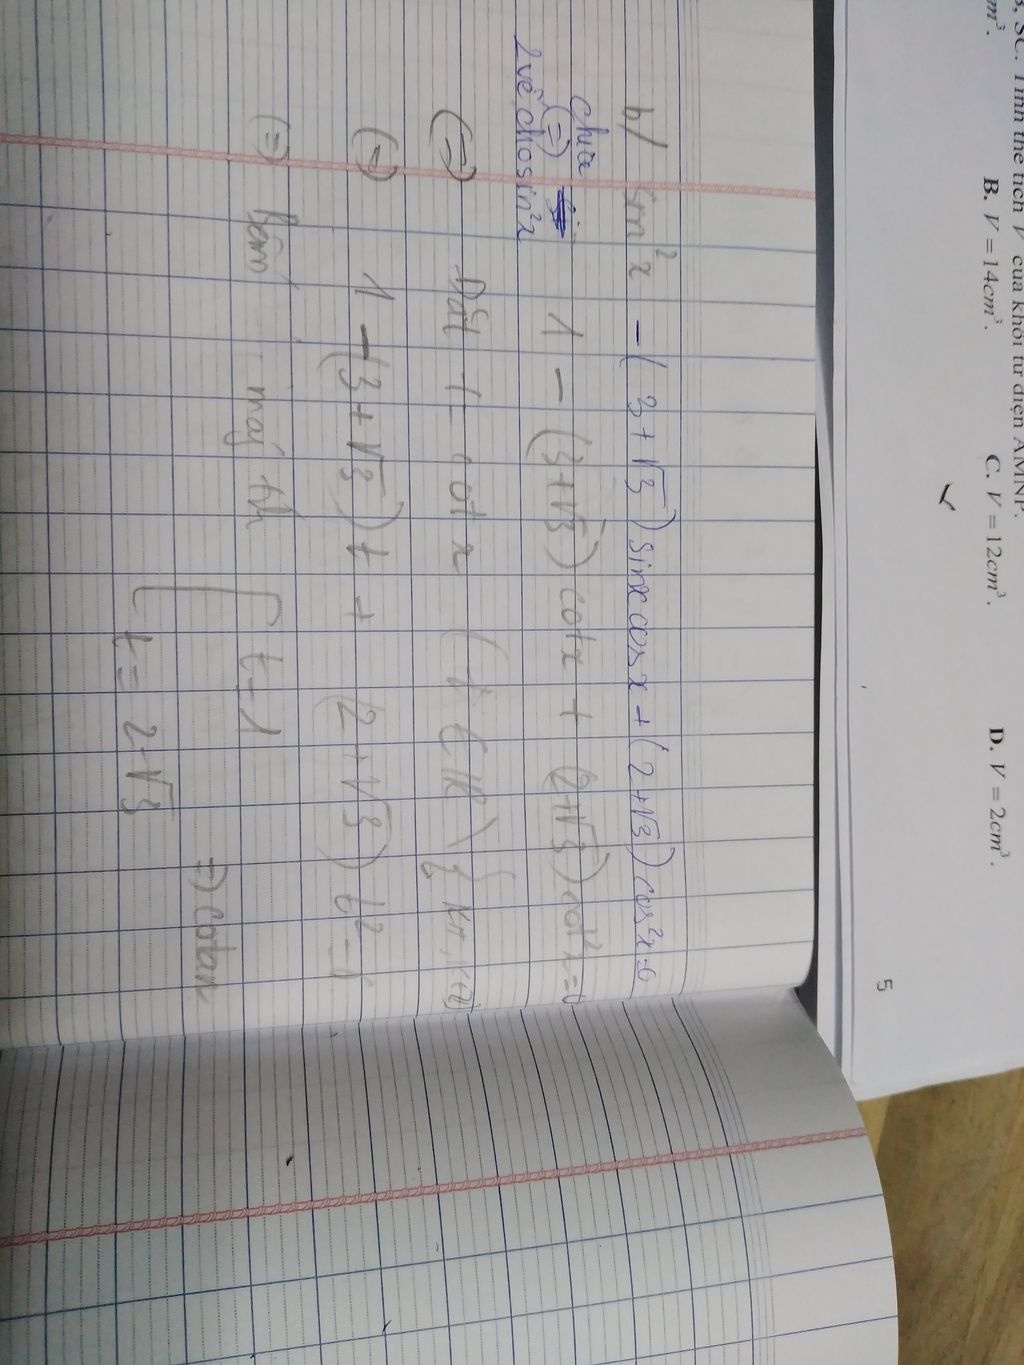 SC. Tính thể tích V của khối tứ diện AMNP.
m³. B. V = 14cm³. C. V = 12cm³. D. V = 2cm³.
5
b/ sin²x - (3+√3) sinxcosx + (2+√3) cos²x=0
chia (=) 1 - (3+√3) cotx + (2+√3) cot²x = 0
2 vế cho sin²x
(=) Đặt t = cot x ( x ∈ R \ { kπ, k∈Z}
(=) 1 - (3+√3)t + (2+√3) t² =
(=) Bấm máy th [ t = 1
=) cotan
t = 2-√3